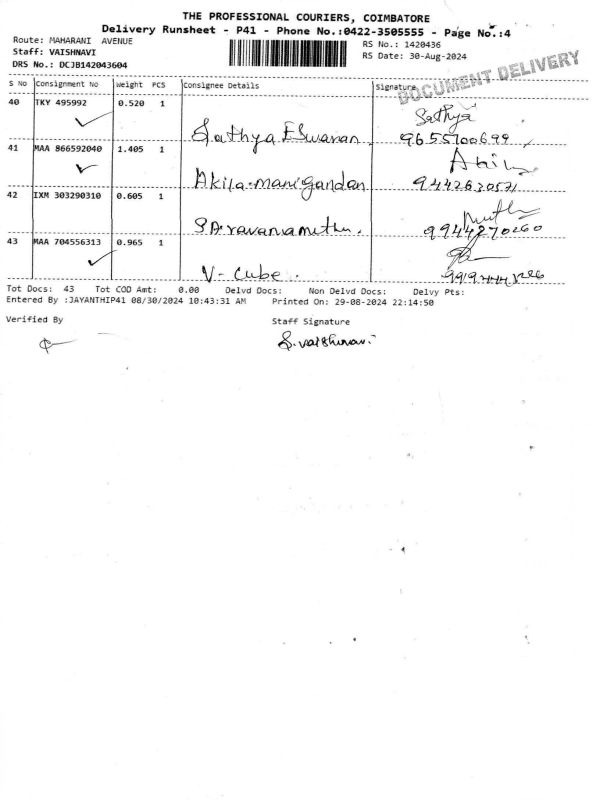 THE PROFESSIONAL COURIERS, COIMBATORE
Delivery Runsheet - P41 - Phone No.:0422-3505555 - Page No.:4
Route: MAHARANI AVENUE
Staff: VAISHNAVI
DRS No.: DCJB142043604
RS No.: 1420436
RS Date: 30-Aug-2024
DOCUMENT DELIVERY
S No Consignment No Weight PCS Consignee Details Signature
40 TKY 495992 0.520 1
Sathya
Sathya ESwaran 9655700699
41 MAA 866592040 1.405 1
Akila-manigandan 9442630571
42 IXM 303290310 0.605 1
Muth
Saravanamuthu. 9944270260
43 MAA 704556313 0.965 1
V- cube.
Tot Docs: 43 Tot COD Amt: 0.00 Delvd Docs: Non Delvd Docs: Delvy Pts:
Entered By :JAYANTHIP41 08/30/2024 10:43:31 AM Printed On: 29-08-2024 22:14:50
Verified By Staff Signature
S.vaishnavi